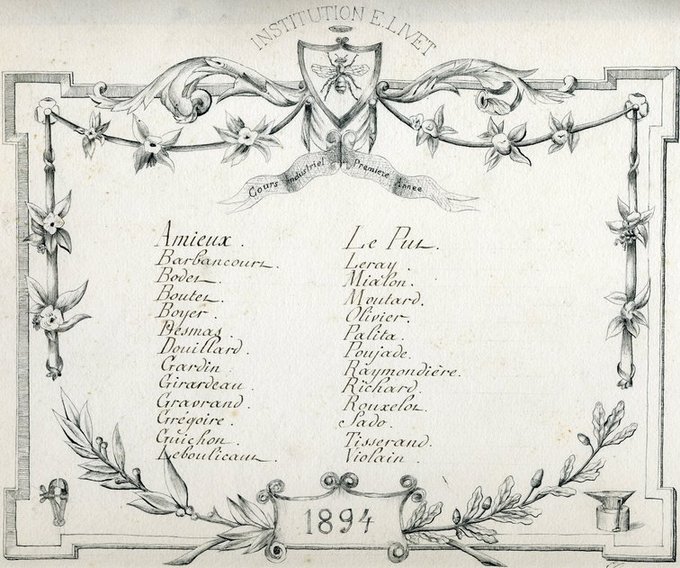 INSTITUTION E. LIVET
Cours Industriel Première Année
Amieux.
Barbancourt.
Bodet.
Boutet.
Boyer.
Desmas.
Douillard.
Gardin.
Girardeau.
Gravrand.
Grégoire.
Guichon.
Leboulicaut.
Le Put.
Leray.
Mialon.
Moutard.
Olivier.
Palita.
Poujade.
Raymondière.
Richard.
Rouxelot.
Sado.
Tisserand.
Violain.
1894